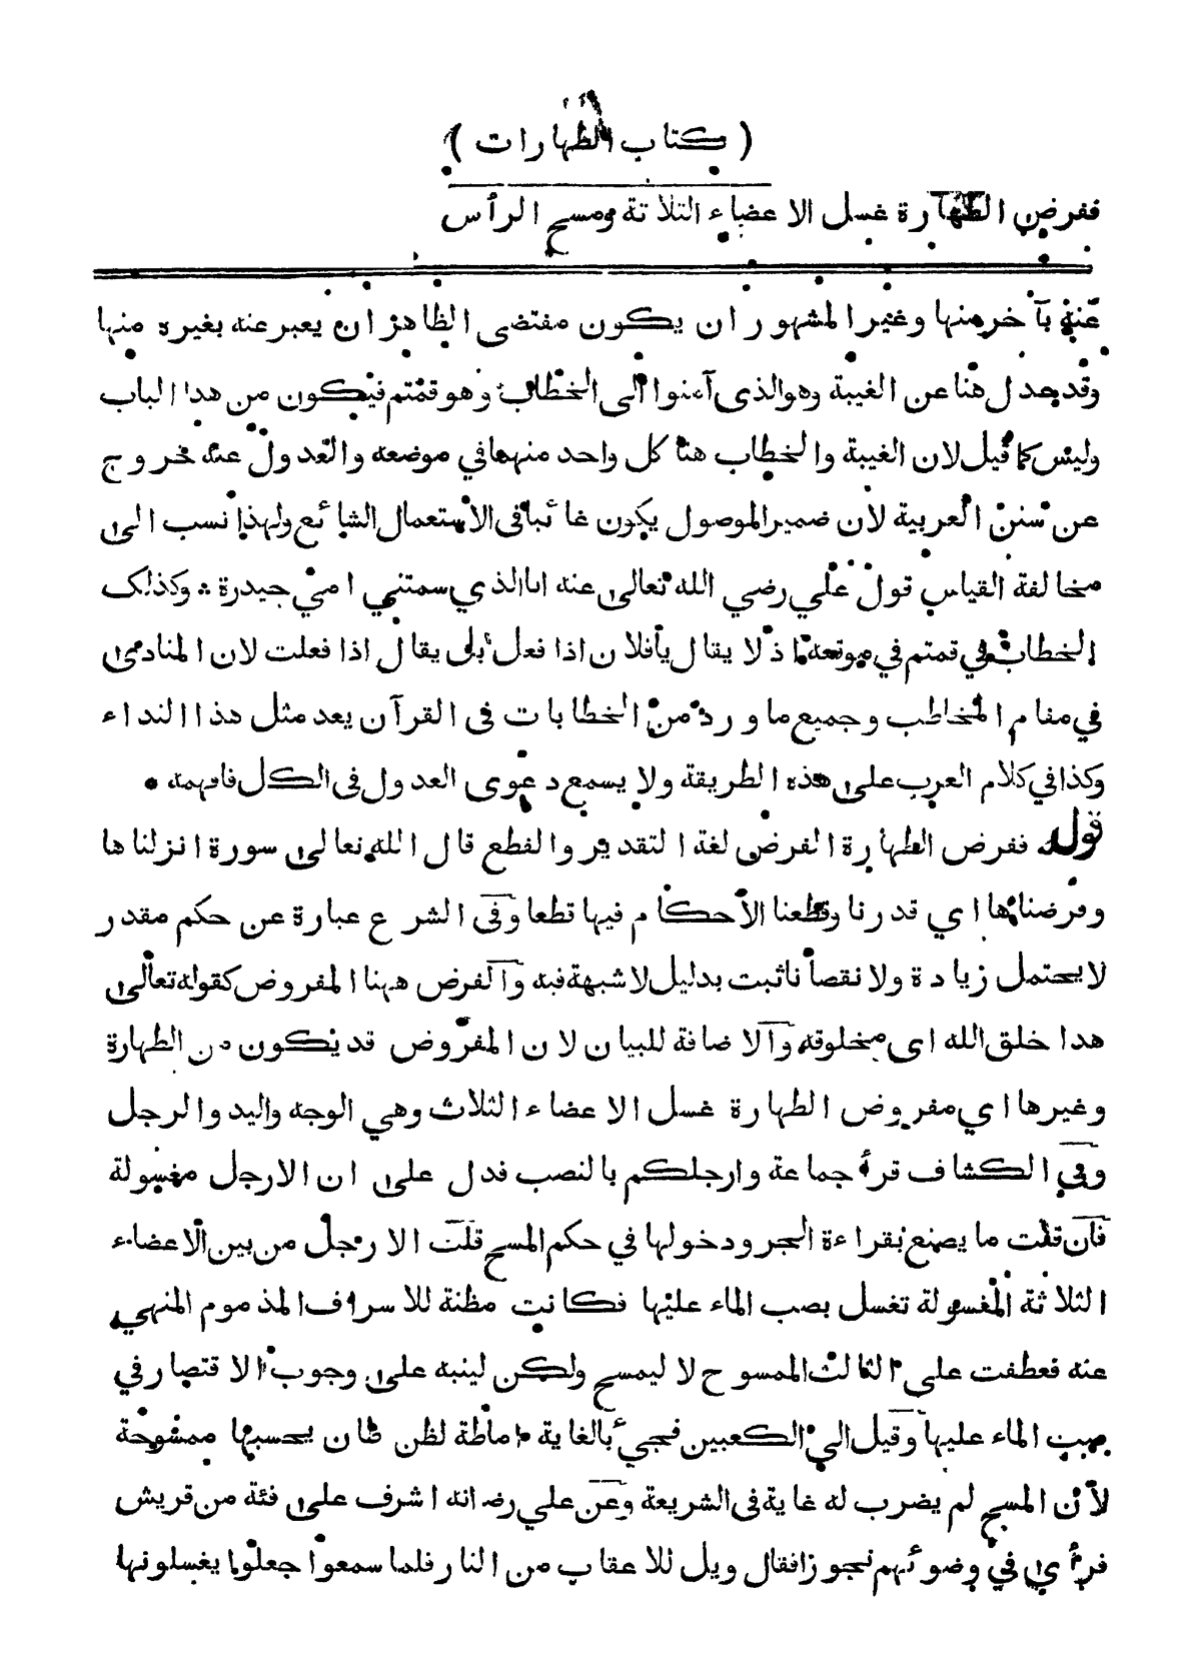 ( كتاب الطهارات )
ففرض الطهارة غسل الاعضاء الثلاثة ومسح الرأس
عنه بآخر منها وغير المشهور ان يكون مقتضى الظاهر ان يعبر عنه بغيره منها
وقد عدل هنا عن الغيبة وهو الذى آمنوا الى الخطاب وهو قمتم فيكون من هذا الباب
وليس كما قيل لان الغيبة والخطاب هنا كل واحد منهما في موضعه والعدول عنه خروج
عن سنن العربية لان ضمير الموصول يكون غائبا فى الاستعمال الشائع ولهذا نسب الى
مخالفة القياس قول علي رضي الله تعالى عنه انا الذي سمتني امي حيدرة * وكذلك
الخطاب في قمتم في موقعه اذ لا يقال يا فلان اذا فعل بلى يقال اذا فعلت لان المنادى
في مقام المخاطب وجميع ما ورد من الخطابات فى القرآن يعد مثل هذا النداء
وكذا في كلام العرب على هذه الطريقة ولا يسمع دعوى العدول فى الكل فافهمه •
قوله ففرض الطهارة الفرض لغة التقدير والقطع قال الله تعالى سورة انزلناها
وفرضناها اي قدرنا وقطعنا الأحكام فيها قطعا وفى الشرع عبارة عن حكم مقدر
لا يحتمل زيادة ولا نقصانا ثبت بدليل لا شبهة فيه والفرض ههنا المفروض كقوله تعالى
هذا خلق الله اى مخلوقه والاضافة للبيان لان المفروض قد يكون من الطهارة
وغيرها اي مفروض الطهارة غسل الاعضاء الثلاث وهي الوجه واليد والرجل
وفي الكشاف قرأ جماعة وارجلكم بالنصب فدل على ان الارجل مغسولة
فان قلت ما يصنع بقراءة الجر ودخولها في حكم المسح قلت الارجل من بين الاعضاء
الثلاثة المغسولة تغسل بصب الماء عليها فكانت مظنة للاسراف المذموم المنهي
عنه فعطفت على الثالث الممسوح لا ليمسح ولكن لينبه على وجوب الاقتصار في
صب الماء عليها وقيل الى الكعبين فجيء بالغاية اماطة لظن ظان يحسبها ممسوحة
لأن المسح لم يضرب له غاية فى الشريعة وعن علي رضـ انه اشرف على فئة من قريش
فرأى في وضوئهم تجوزا فقال ويل للاعقاب من النار فلما سمعوا جعلوا يغسلونها